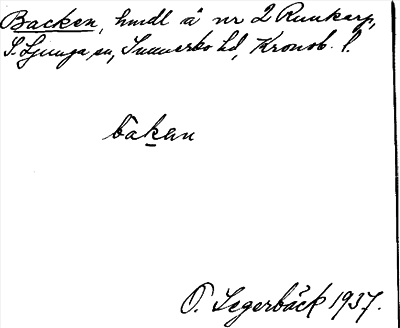 Backen, hmdl å nr 2 Runkarp,
S. Ljunga sn, Sunnerbo hd, Kronob. l.
bakan
O. Segerbäck 1937.